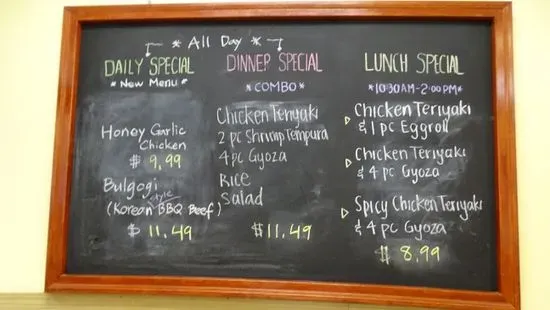 * All Day *
DAILY SPECIAL
* New Menu *
Honey Garlic
Chicken
$ 9.99
Bulgogi
style
(Korean BBQ Beef)
$ 11.49
DINNER SPECIAL
* COMBO *
Chicken Teriyaki
2 pc Shrimp Tempura
4 pc Gyoza
Rice
Salad
$ 11.49
LUNCH SPECIAL
*10:30AM-2:00PM*
▷ Chicken Teriyaki
& 1 pc Eggroll
▷ Chicken Teriyaki
& 4 pc Gyoza
▷ Spicy Chicken Teriyaki
& 4 pc Gyoza
$ 8.99